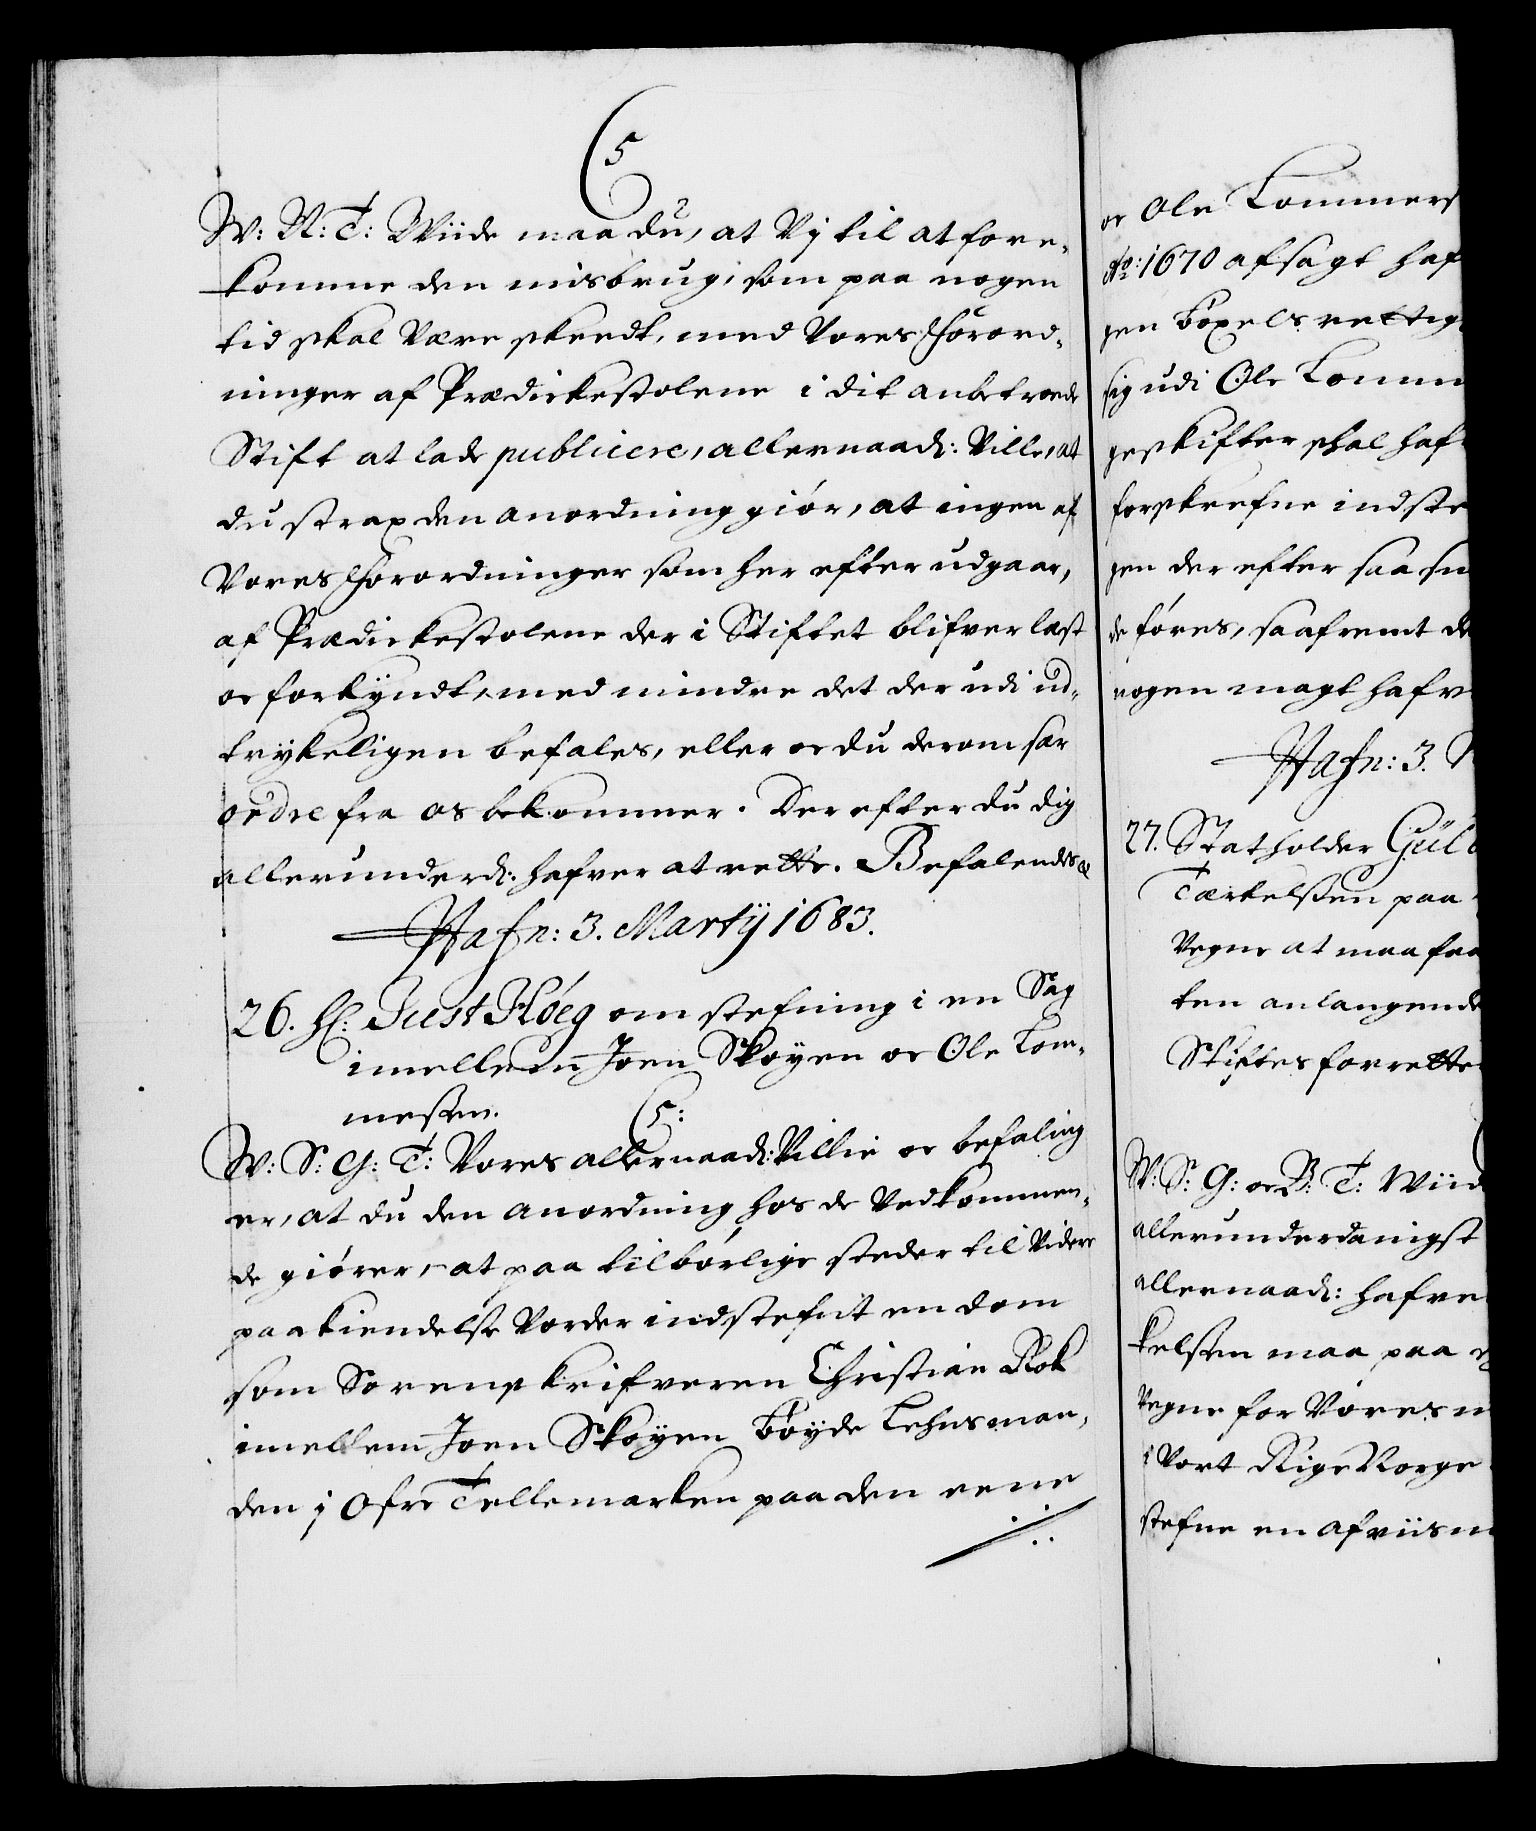 C5
W: N: T: Wiide maa du, at Vj til at fore-
komme den misbrug, som paa nogen
tid skal være skeedt, med Vores Forord-
ninger af Prædickestolene i dit anbetroede
Stift at lade publicere, allernaadl: Ville, at
du strax den anordning giør, at ingen af
Vores Forordninger som her efter udgaar,
af Prædickestolene der i Stiftet blifver læst
oc forkyndt, med mindre det der udi ud-
trykeligen befales, eller oc du derom sær
ordre fra os bekommer. Der efter du dig
allerunderd: hafver at rette. Befalendis &c
Hafn: 3. Martij 1683.
26. Hl: Just Høeg om stefning i en Sag
imellem Joen Skoyen oc Ole Lom-
messen.
C5:
W: S: G: T: Vores allernaadl: Villie oc befaling
er, at du den anordning hos de Vedkommen-
de giører, at paa tilbørlige steder til Videre
paakiendelse Vorder indstefnt en dom
som Sorenskrifveren Christian Rok
imellem Joen Skoyen Bøyde Lehnsman-
den j Ofre Tellemarken paa den eene
oc Ole Lommers
Ao: 1670 afsagt haf
gen Bøxels rettig
sig udi Ole Lomm
geskifter skal haf
forskrefne indste
gen der efter saa sn
de føres, saafremt de
nogen magt hafv
Hafn: 3. M
27. Statholder Gül
Tærkelssen paa
Vegne at maa faa
ten anlangende
Skiftes forrette
W: S: G: oc B: T: Wiid
allerunderdanigst
allernaadl: hafve
kelssen maa paa eg
Vegne for Vores
i Vort Rige Norge
stefne en afviisn